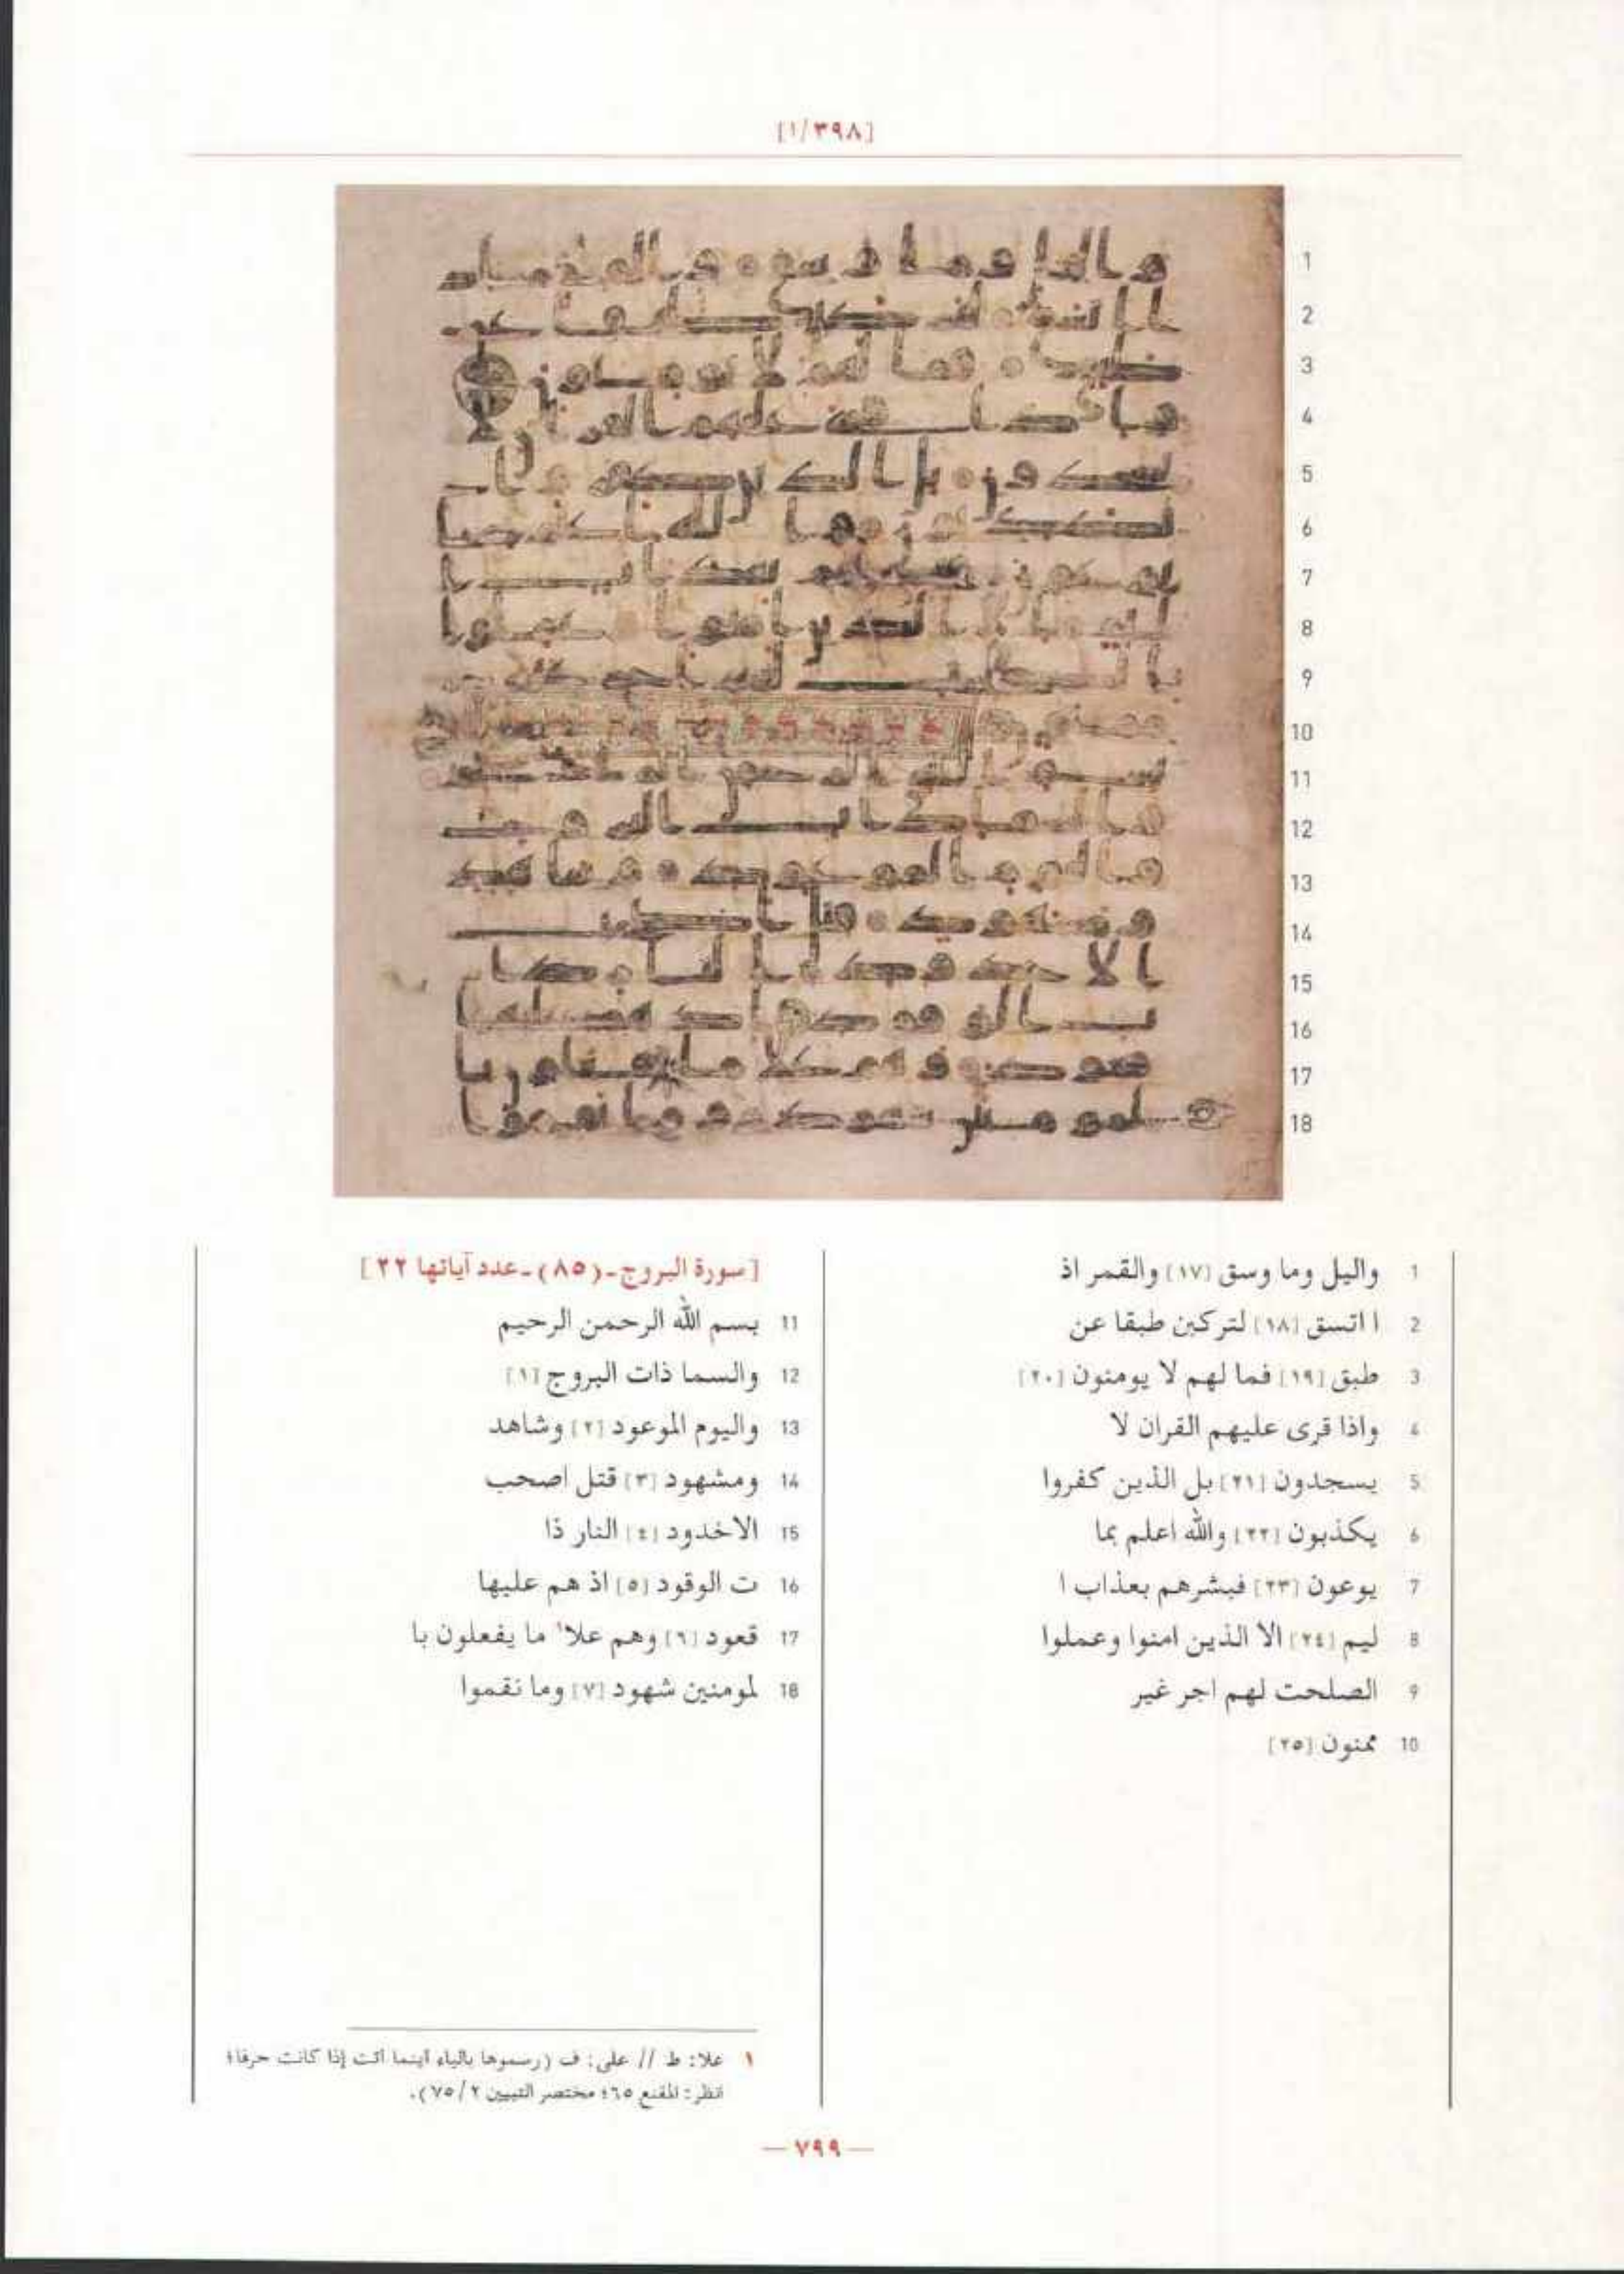 [١/٣٩٨]
1 واليل وما وسق [١٧] والقمر اذ
2 ا اتسق [١٨] لتركبن طبقا عن
3 طبق [١٩] فما لهم لا يومنون [٢٠]
4 واذا قرى عليهم القران لا
5 يسجدون [٢١] بل الذين كفروا
6 يكذبون [٢٢] والله اعلم بما
7 يوعون [٢٣] فبشرهم بعذاب ا
8 ليم [٢٤] الا الذين امنوا وعملوا
9 الصلحت لهم اجر غير
10 ممنون [٢٥]
[سورة البروج-(٨٥)-عدد آياتها ٢٢]
11 بسم الله الرحمن الرحيم
12 والسما ذات البروج [١]
13 واليوم الموعود [٢] وشاهد
14 ومشهود [٣] قتل اصحب
15 الاخدود [٤] النار ذا
16 ت الوقود [٥] اذ هم عليها
17 قعود [٦] وهم علا١ ما يفعلون با
18 لمومنين شهود [٧] وما نقموا
١ علا: ط // على: ف (رسموها بالياء أينما أتت إذا كانت حرفا؛
انظر: المقنع ٦٥؛ مختصر التبيين ٢/ ٧٥).
— ٧٩٩ —